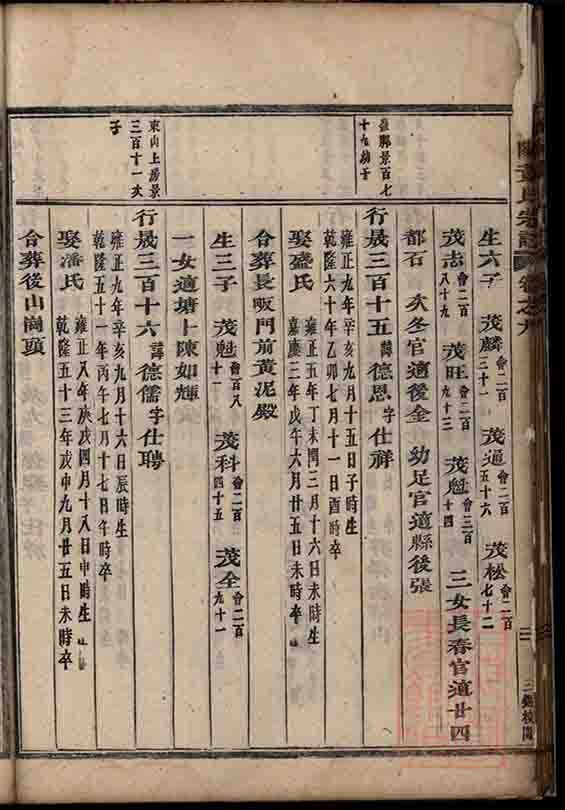 生六子 茂麟會二百三十一 茂通會二百五十六 茂松會二百七十二
茂志會二百八十九 茂旺會二百九十三 茂魁會三百十四 三女長春官適廿四
都石 次冬官適後金 幼足官適縣後張
景百七十九幼子
行晟三百十五 諱德恩字仕祥
雍正九年辛亥九月十五日子時生
乾隆六十年乙卯七月十一日酉時卒
娶盛氏 雍正五年丁未閏三月十六日未時生
嘉慶三年戊午六月廿五日未時卒
合葬長畈門前黃泥殿
生三子 茂魁會百八十一 茂科會二百四十五 茂全會二百九十一
一女適塘上陳如輝
東山上房景三百十一次子
行晟三百十六 諱德儒字仕聘
雍正九年辛亥九月十六日辰時生
乾隆五十一年丙午七月十七日午時卒
娶潘氏 雍正八年庚戌四月十八日申時生
乾隆五十三年戊申九月廿五日未時卒
合葬後山崗頭
黃氏宗譜 卷之九